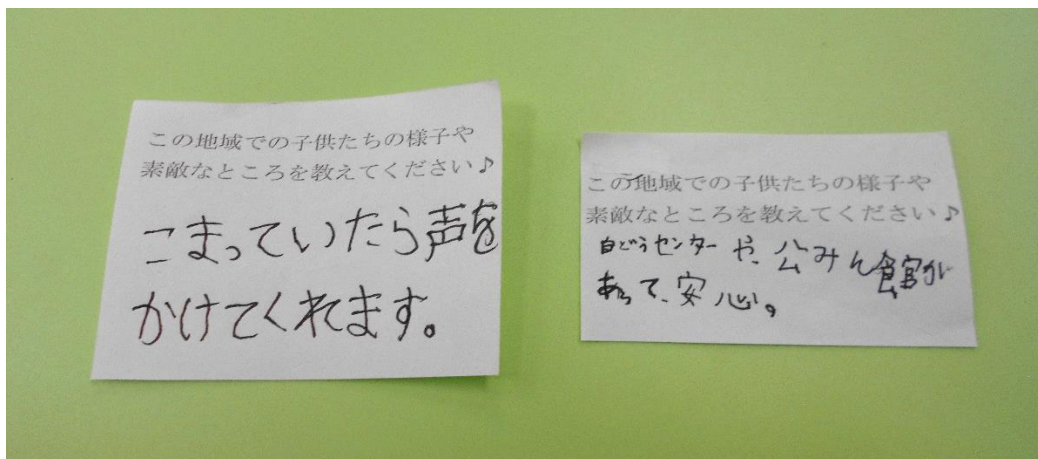 この地域での子供たちの様子や
素敵なところを教えてください♪
こまっていたら声を
かけてくれます。
この地域での子供たちの様子や
素敵なところを教えてください♪
白どうセンターや、公みん館が
あって、安心。